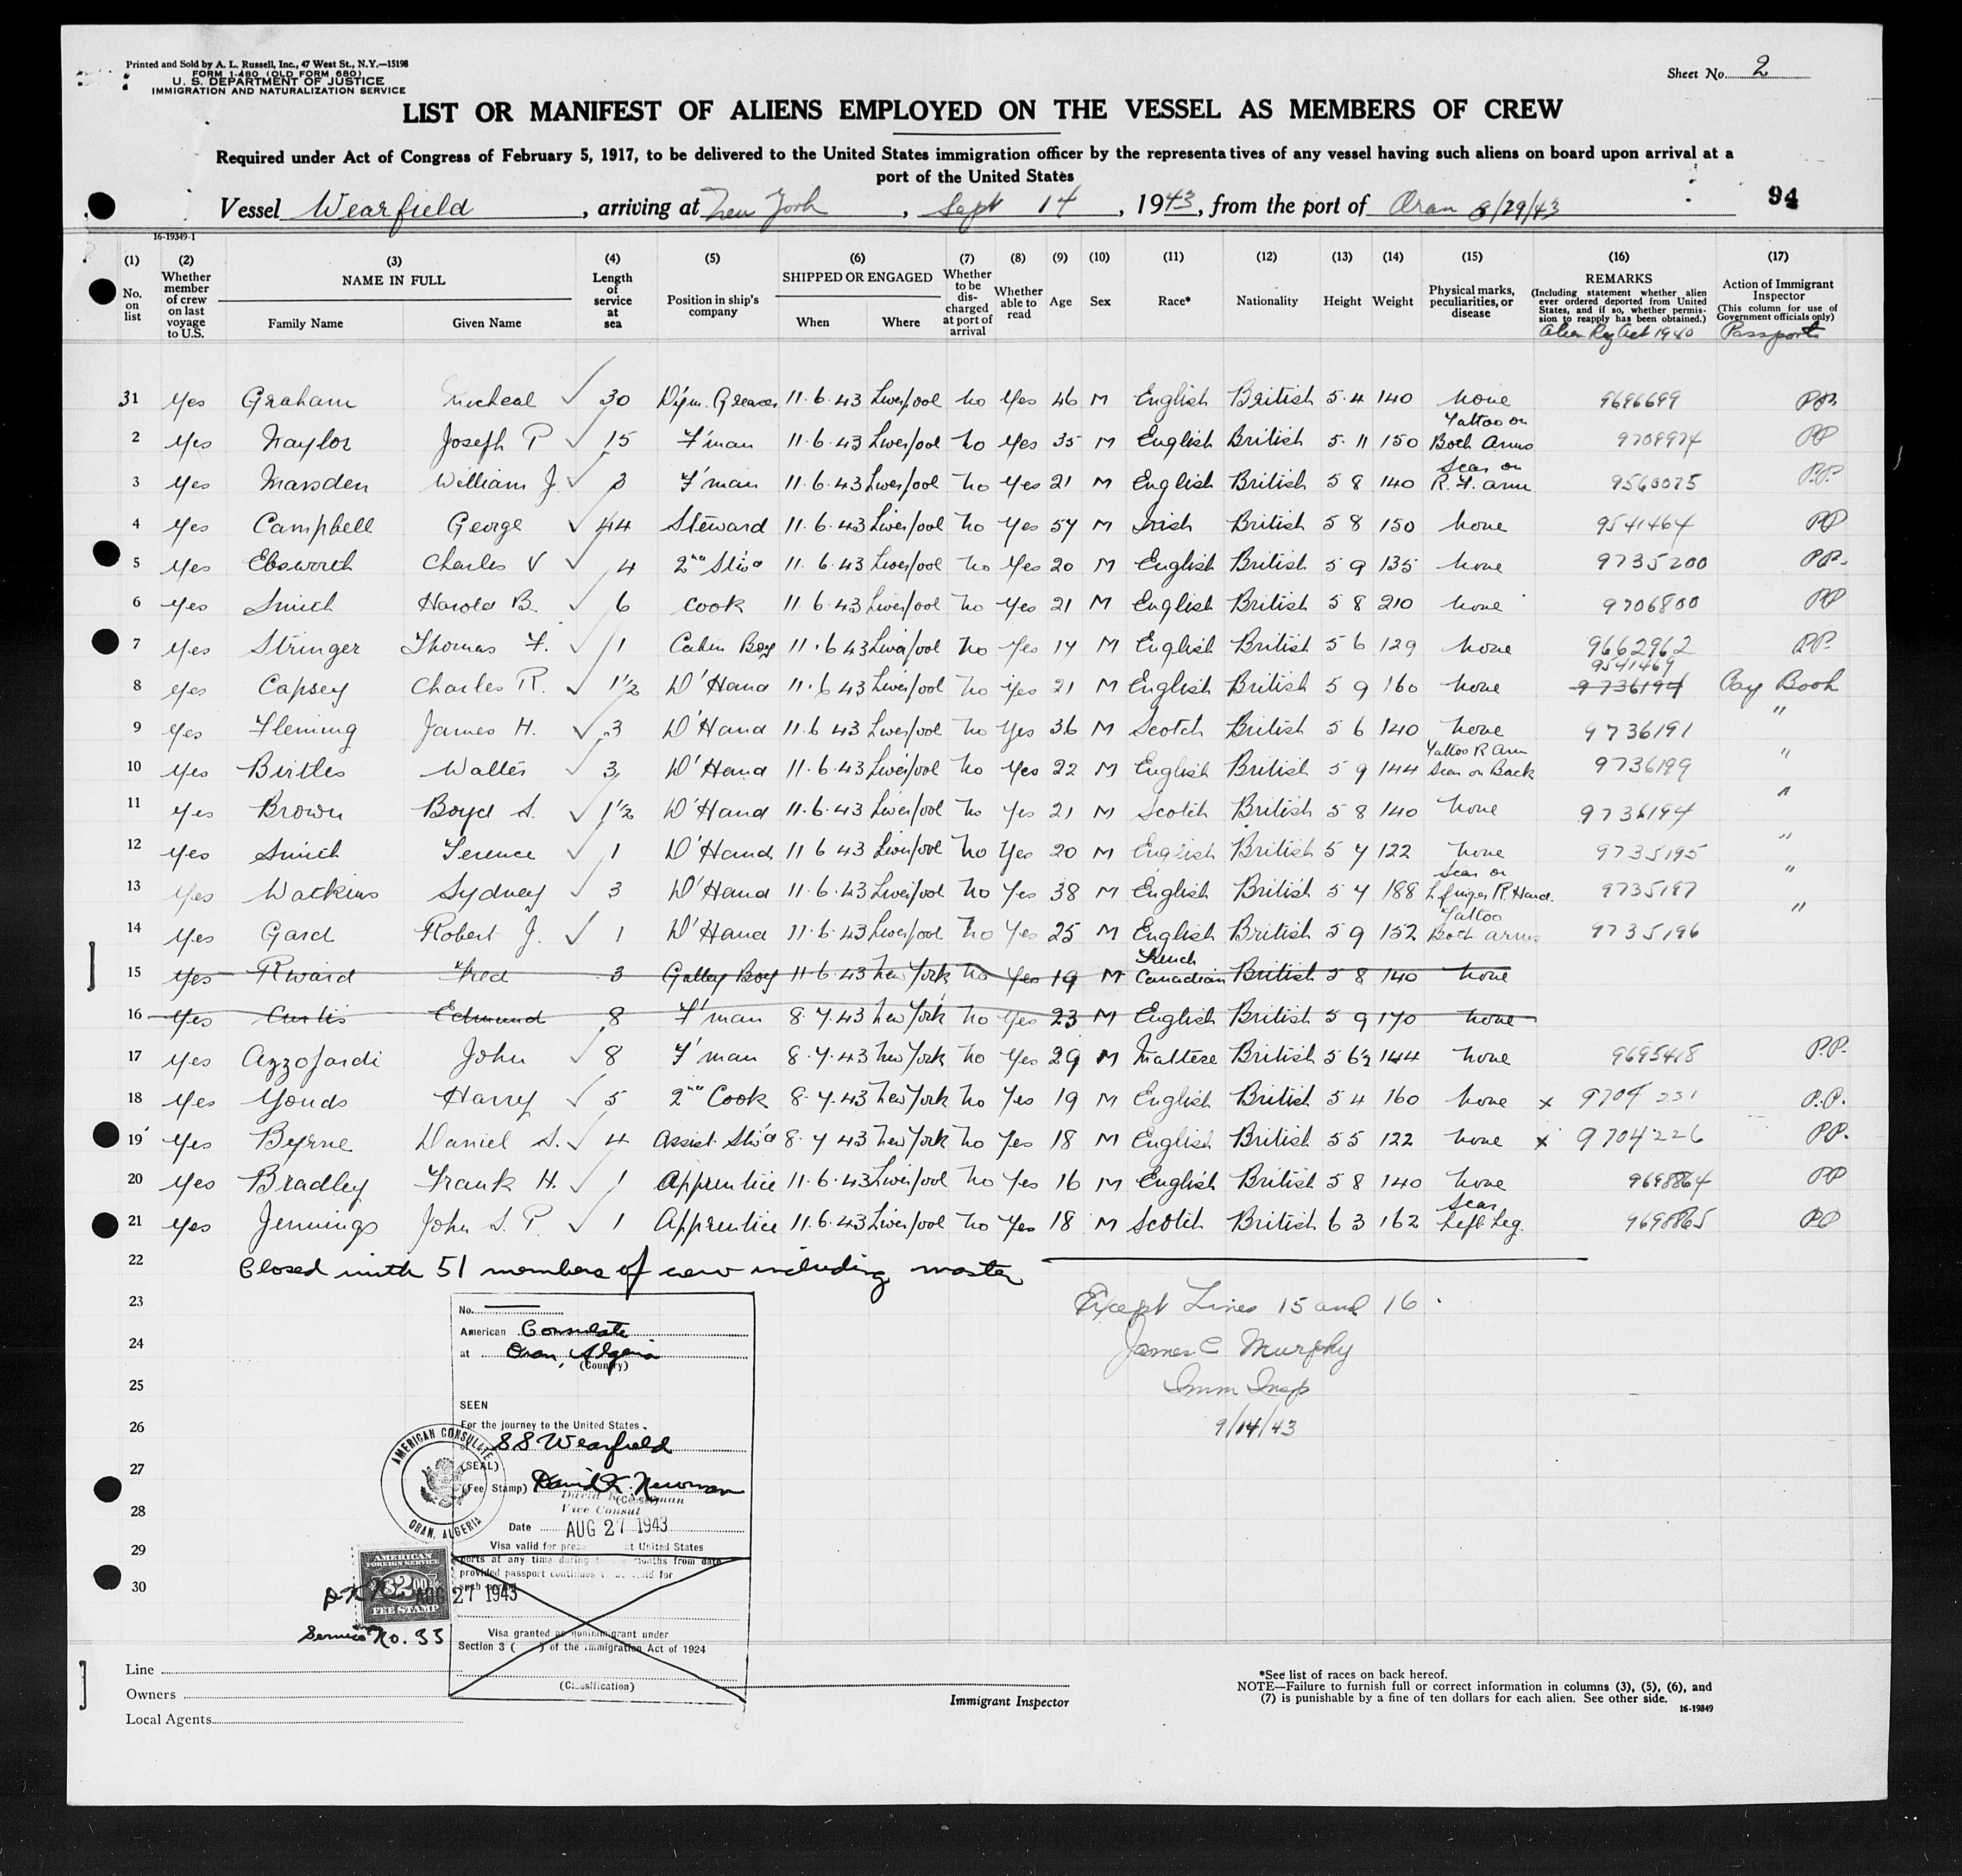 Printed and Sold by A. L. Russell, Inc., 47 West St., N.Y.—15198
FORM I-480 (OLD FORM 680)
U. S. DEPARTMENT OF JUSTICE
IMMIGRATION AND NATURALIZATION SERVICE
Sheet No. 2
LIST OR MANIFEST OF ALIENS EMPLOYED ON THE VESSEL AS MEMBERS OF CREW
Required under Act of Congress of February 5, 1917, to be delivered to the United States immigration officer by the representatives of any vessel having such aliens on board upon arrival at a
port of the United States
Vessel Wearfield, arriving at New York, Sept 14, 1943, from the port of Oran 8/29/43
94
16-19349-1
(1) No. on list
(2) Whether member of crew on last voyage to U.S.
(3) NAME IN FULL Family Name Given Name
(4) Length of service at sea
(5) Position in ship's company
(6) SHIPPED OR ENGAGED When Where
(7) Whether to be discharged at port of arrival
(8) Whether able to read
(9) Age
(10) Sex
(11) Race*
(12) Nationality
(13) Height
(14) Weight
(15) Physical marks, peculiarities, or disease
(16) REMARKS (Including statement whether alien ever ordered deported from United States, and if so, whether permission to reapply has been obtained.) Alien Reg Act 1940
(17) Action of Immigrant Inspector (This column for use of Government officials only) Passports
31 Yes Graham Micheal ✓ 30 Greaser 11.6.43 Liverpool No Yes 46 M English British 5.4 140 None 9696699 PP
2 Yes Naylor Joseph P ✓ 15 F'man 11.6.43 Liverpool No Yes 35 M English British 5.11 150 Tattoo on Both Arms 9708974 PP
3 Yes Marsden William J. ✓ 3 F'man 11.6.43 Liverpool No Yes 21 M English British 5 8 140 Scar on R. F. arm 9560075 P.P.
4 Yes Campbell George ✓ 44 Steward 11.6.43 Liverpool No Yes 57 M Irish British 5 8 150 None 9541464 PP
5 Yes Ebsworth Charles V ✓ 4 2nd Stw'd 11.6.43 Liverpool No Yes 20 M English British 5 9 135 None 9735200 PP.
6 Yes Smith Harold B. ✓ 6 Cook 11.6.43 Liverpool No Yes 21 M English British 5 8 210 None 9706800 PP
7 Yes Stringer Thomas F. ✓ 1 Cabin Boy 11.6 43 Liverpool No Yes 17 M English British 5 6 129 None 9662962 P.P.
8 Yes Capsey Charles R. ✓ 1½ D'Hand 11.6 43 Liverpool No Yes 21 M English British 5 9 160 None 9541469 9736194 Pay Book
9 Yes Fleming James H. ✓ 3 D'Hand 11.6 43 Liverpool No Yes 36 M Scotch British 5 6 140 None 9736191 "
10 Yes Birtles Walter ✓ 3 D'Hand 11.6.43 Liverpool No Yes 22 M English British 5 9 144 Tattoo R Arm Scar on Back 9736199 "
11 Yes Brown Boyd S. ✓ 1½ D'Hand 11.6.43 Liverpool No Yes 21 M Scotch British 5 8 140 None 9736194 "
12 Yes Smith Terence ✓ 1 D'Hand 11 6 43 Liverpool No Yes 20 M English British 5 7 122 None 9735195 "
13 Yes Watkins Sydney ✓ 3 D'Hand 11.6.43 Liverpool No Yes 38 M English British 5 7 188 Scar on L finger R. Hand. 9735197 "
14 Yes Gard Robert J. ✓ 1 D'Hand 11.6.43 Liverpool No Yes 25 M English British 5 9 152 Tattoo Both arms 9735196 "
15 Yes Fred 3 Galley Boy 11.6.43 New York No Yes 19 M French Canadian British 5 8 140 None
16 Yes Curtis Edmund 8 F'man 8.7.43 New York No Yes 23 M English British 5 9 170 None
17 Yes Azzopardi John ✓ 8 F'man 8.7.43 New York No Yes 29 M Maltese British 5 6½ 144 None 9695418 P.P.
18 Yes Youds Harry ✓ 5 2nd Cook 8.7.43 New York No Yes 19 M English British 5 4 160 None x 9704231 P.P.
19 Yes Byrne Daniel S. ✓ 4 Assist. Stw'd 8.7 43 New York No Yes 18 M English British 5 5 122 None x 9704226 PP.
20 Yes Bradley Frank H. ✓ 1 Apprentice 11.6.43 Liverpool No Yes 16 M English British 5 8 140 None 9698864 PP
21 Yes Jennings John S. P. ✓ 1 Apprentice 11.6.43 Liverpool No Yes 18 M Scotch British 6 3 162 Scar Left Leg. 9698865 PP
22 Closed with 51 members of crew including master
23 Except Lines 15 and 16.
24 James C Murphy
25 Imm Insp
26 9/14/43
27
28
29
30
No.
American Consulate
at Oran, Algeria
(Country)
SEEN
For the journey to the United States
SS Wearfield
(SEAL)
(Fee Stamp) David K. Newman
(Consul)
Vice Consul
Date AUG 27 1943
Visa valid for at United States
ports at any time during months from date
provided passport continues to be valid for
such period
Visa granted as nonimmigrant under
Section 3 ( ) of the Immigration Act of 1924
(Classification)
AMERICAN CONSULATE
ORAN, ALGERIA
AMERICAN FOREIGN SERVICE
$2.00
FEE STAMP
AUG 27 1943
Service No. 33
Line
Owners
Local Agents
Immigrant Inspector
*See list of races on back hereof.
NOTE—Failure to furnish full or correct information in columns (3), (5), (6), and
(7) is punishable by a fine of ten dollars for each alien. See other side.
16-19849